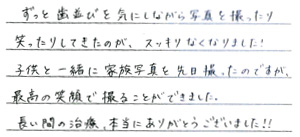 ずっと歯並びを気にしながら写真を撮ったり
笑ったりしてきたのが、スッキリなくなりました!
子供と一緒に家族写真を先日撮ったのですが、
最高の笑顔で撮ることができました。
長い間の治療、本当にありがとうございました!!